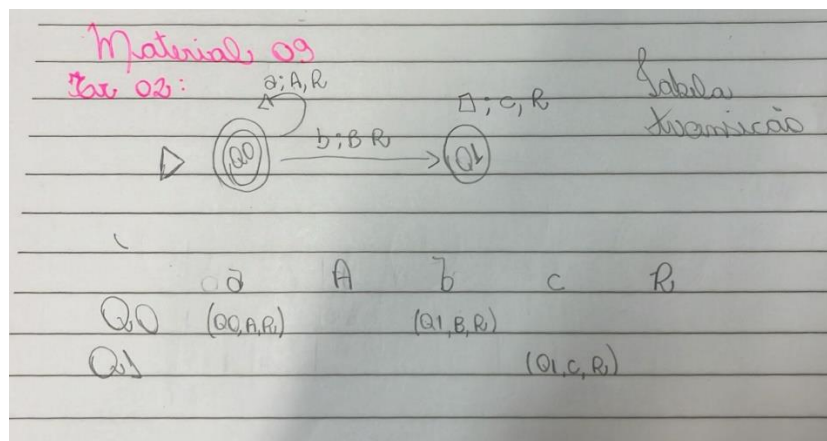 Material 09
Ex 02:
a; A, R
□; c, R
Tabela
transição
Q0
b; B R
Q1
a A b c R
Q0 (Q0, A, R) (Q1, B, R)
Q1 (Q1, C, R)